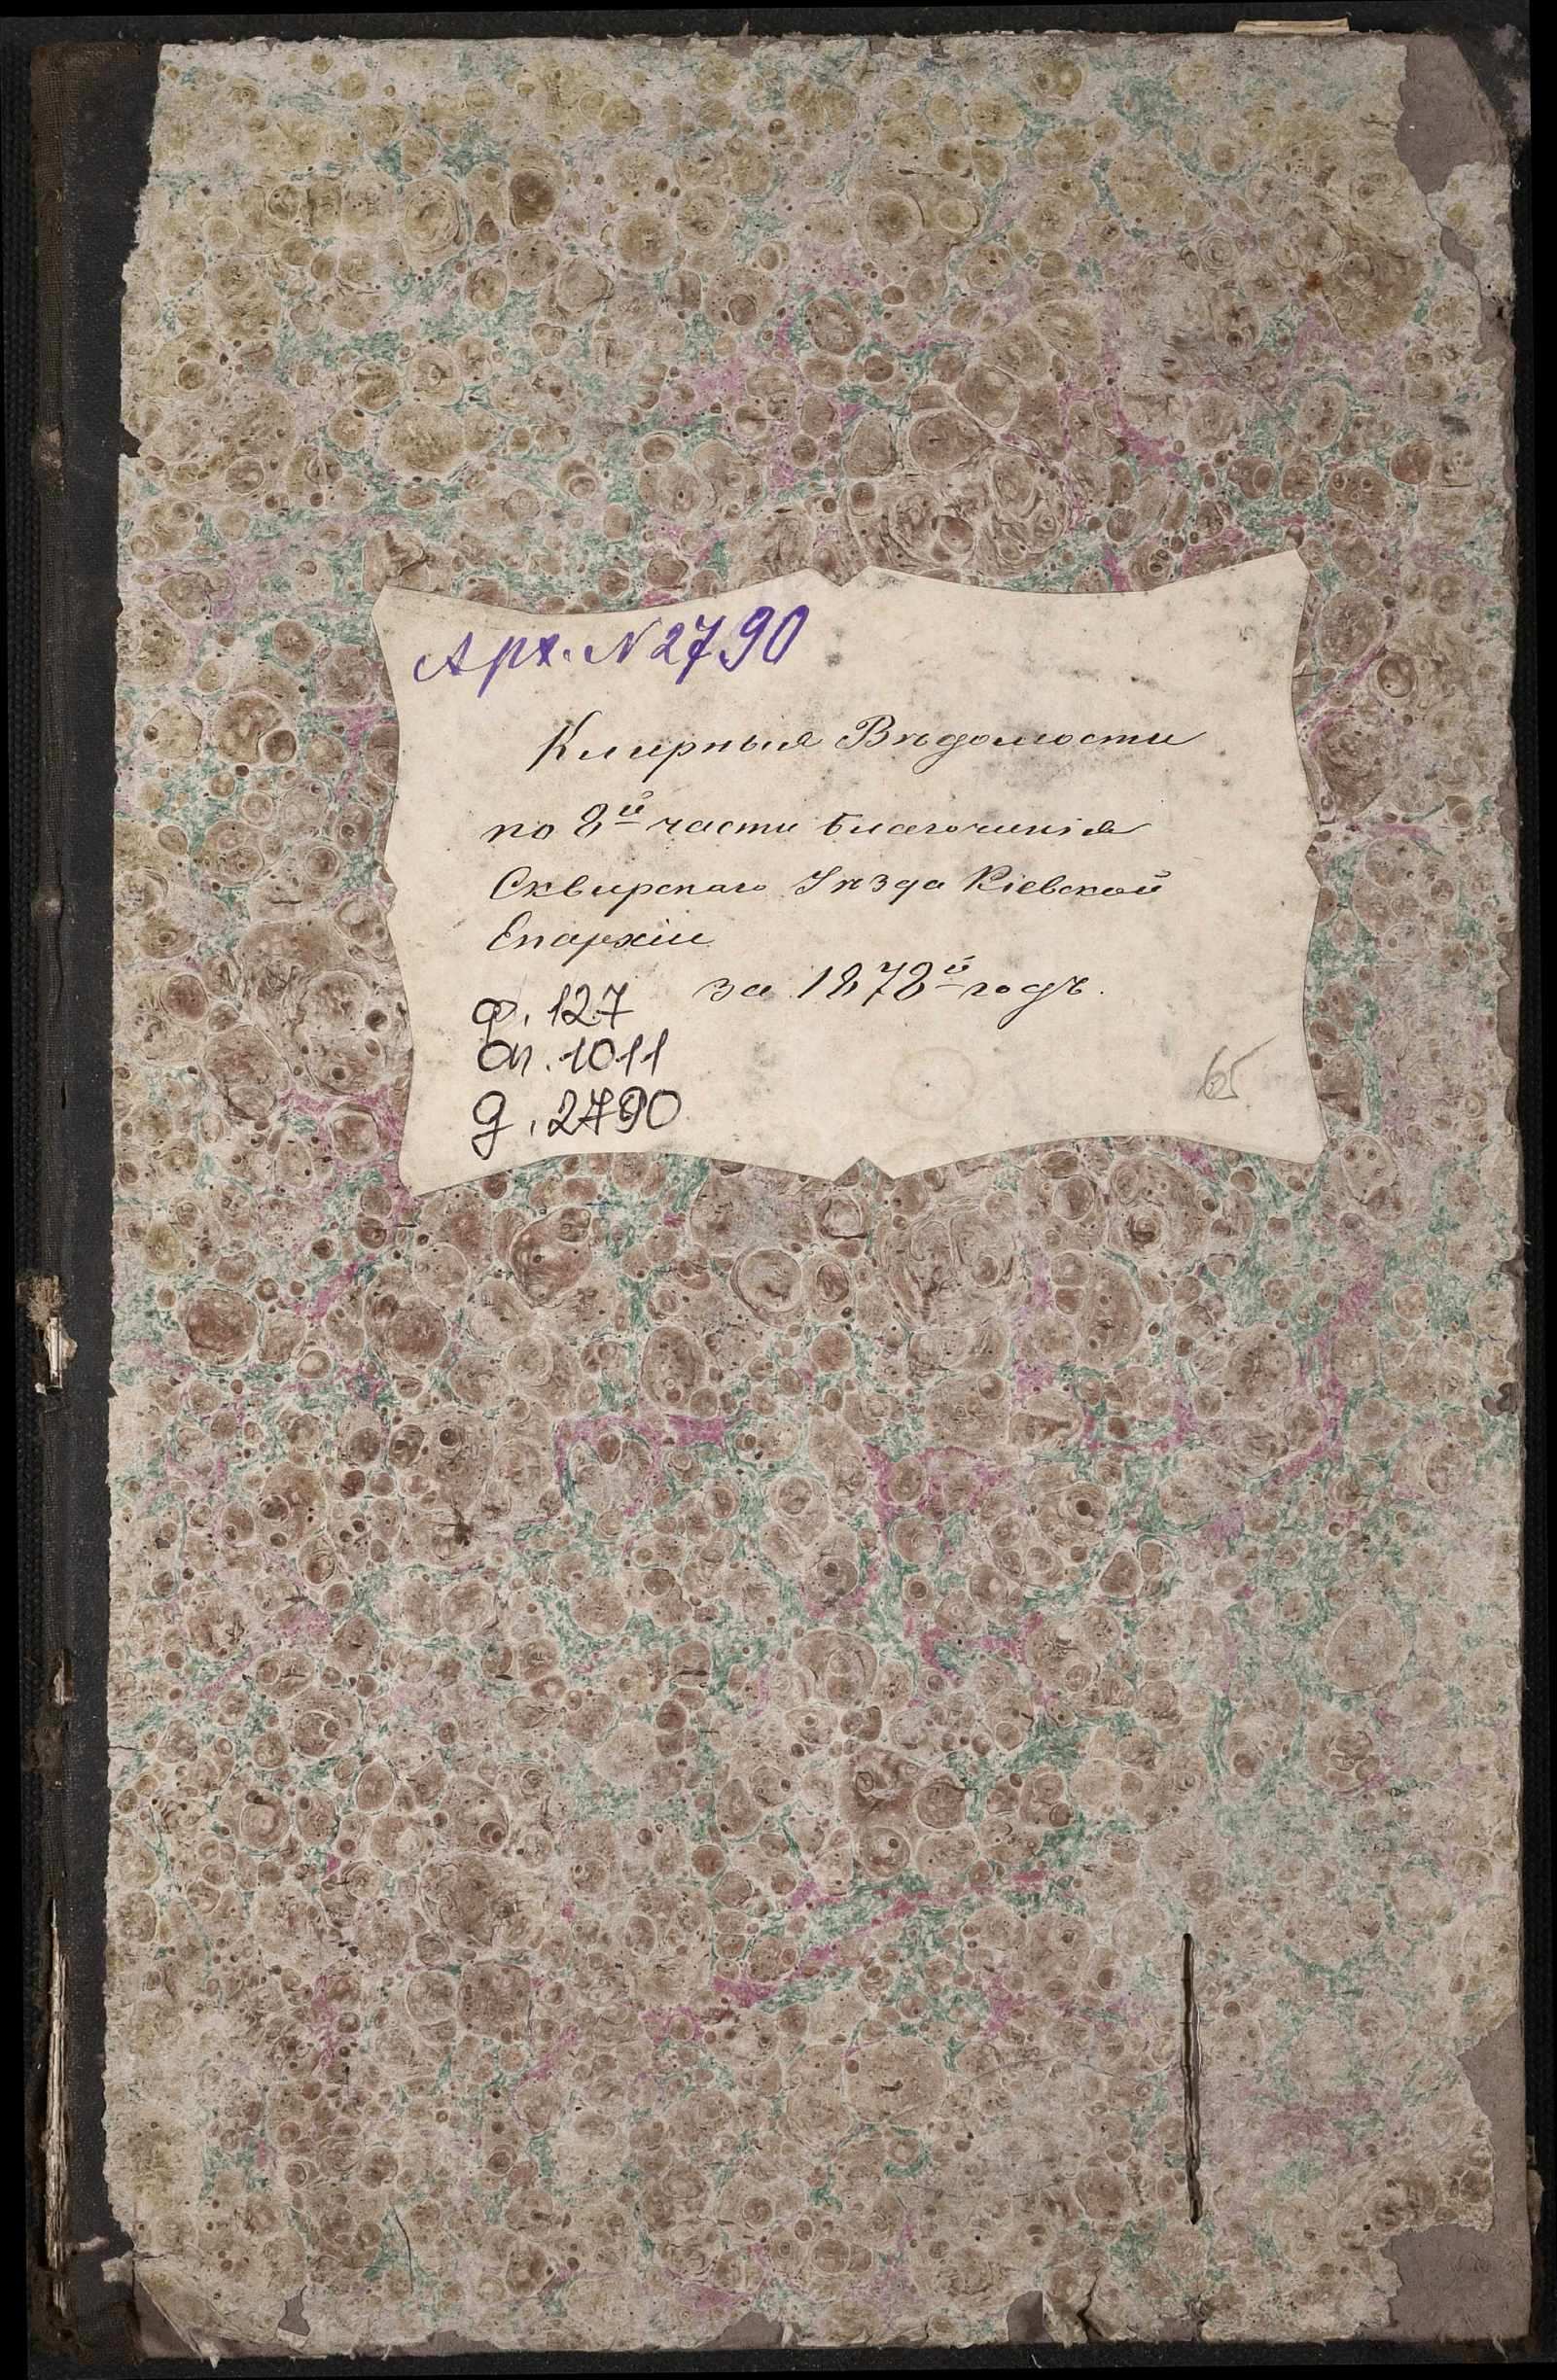 Арх. N 2790
Клирныя Вѣдомости
по 2й части Благочинія
Сквирскаго Уѣзда Кіевской
Епархіи
за 1878й годъ.
ф. 127
оп. 1011
д. 2790
65